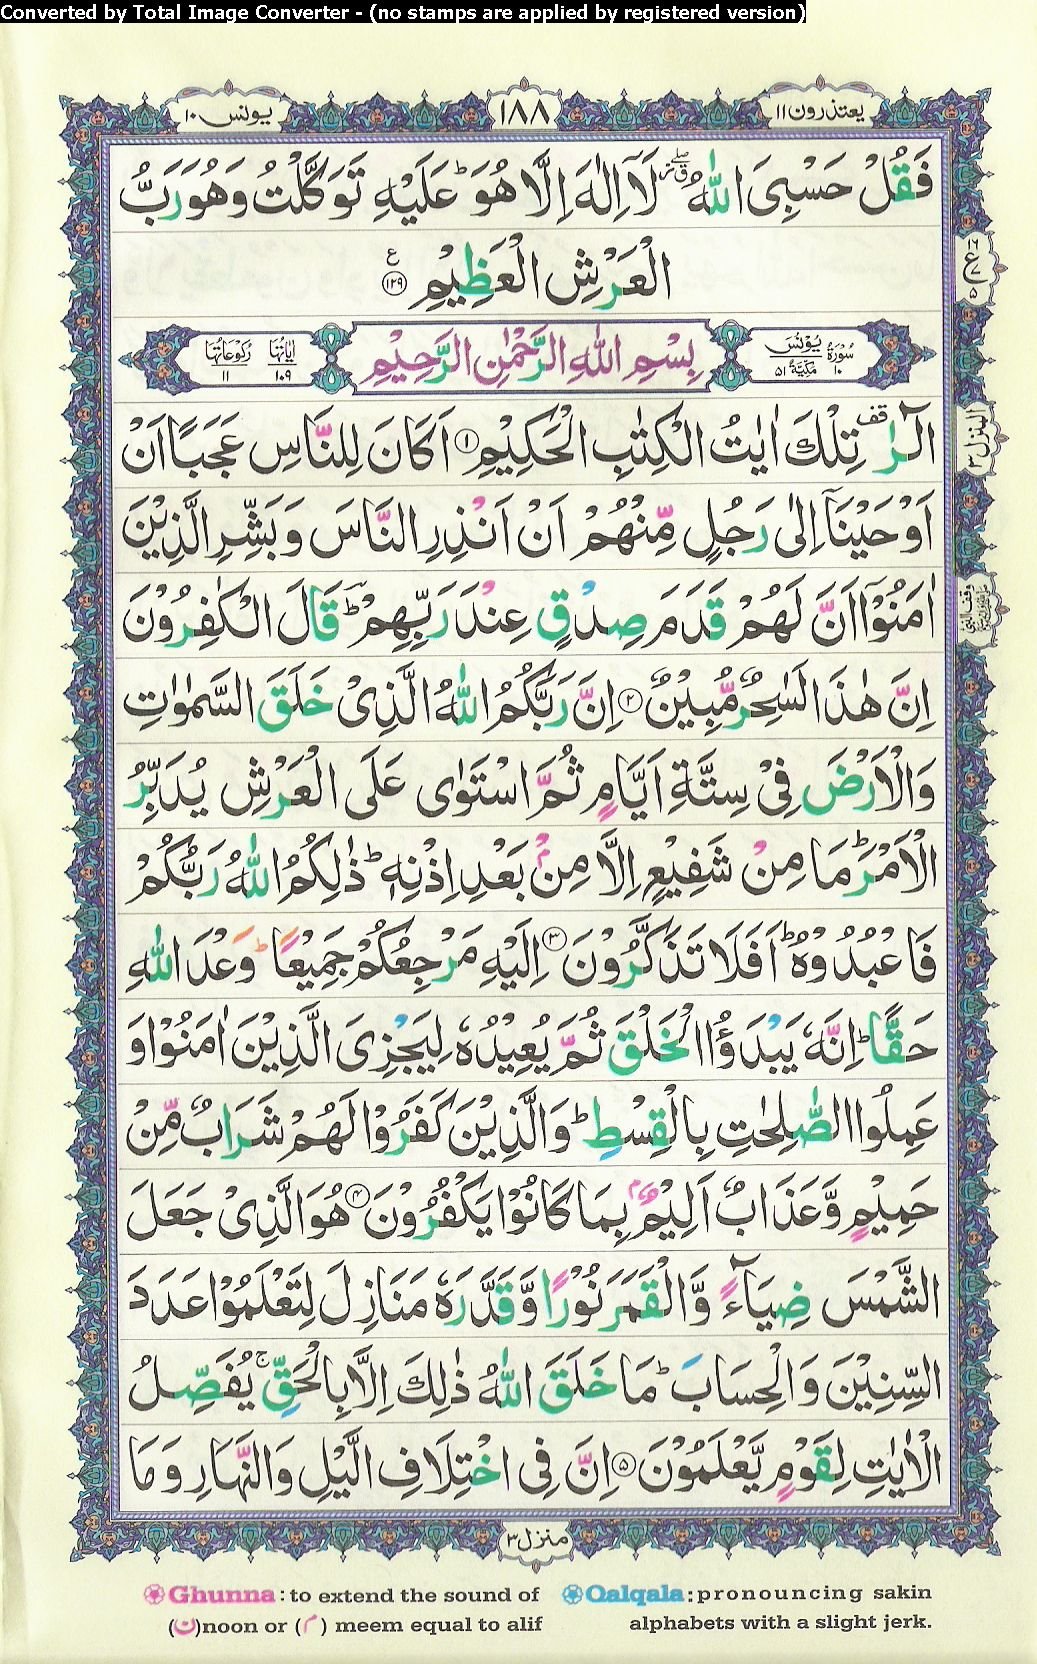 Converted by Total Image Converter - (no stamps are applied by registered version)
يعتذرون ١١ ١٨٨ يونس ١٠
فَقُلْ حَسْبِىَ اللّٰهُ ۖ لَاۤ اِلٰهَ اِلَّا هُوَ ؕ عَلَيْهِ تَوَكَّلْتُ وَهُوَ رَبُّ
الْعَرْشِ الْعَظِيْمِ ﴿١٢٩﴾ ع
١٦ ع ٥
سُوْرَةُ يُوْنُسَ مَكِّيَّةٌ ١٠ ٥١ بِسْمِ اللّٰهِ الرَّحْمٰنِ الرَّحِيْمِ اٰيَاتُهَا ١٠٩ رُكُوْعَاتُهَا ١١
الٓرٰ ࣞقف تِلْكَ اٰيٰتُ الْكِتٰبِ الْحَكِيْمِ ﴿١﴾ اَكَانَ لِلنَّاسِ عَجَبًا اَنْ
المنزل ٣
اَوْحَيْنَاۤ اِلٰى رَجُلٍ مِّنْهُمْ اَنْ اَنْذِرِ النَّاسَ وَبَشِّرِ الَّذِيْنَ
اٰمَنُوْۤا اَنَّ لَهُمْ قَدَمَ صِدْقٍ عِنْدَ رَبِّهِمْ ؕ قَالَ الْكٰفِرُوْنَ
اِنَّ هٰذَا لَسٰحِرٌ مُّبِيْنٌ ﴿٢﴾ اِنَّ رَبَّكُمُ اللّٰهُ الَّذِىْ خَلَقَ السَّمٰوٰتِ
وَالْاَرْضَ فِىْ سِتَّةِ اَيَّامٍ ثُمَّ اسْتَوٰى عَلَى الْعَرْشِ يُدَبِّرُ
الْاَمْرَ ؕ مَا مِنْ شَفِيْعٍ اِلَّا مِنْۢ بَعْدِ اِذْنِهٖ ؕ ذٰلِكُمُ اللّٰهُ رَبُّكُمْ
فَاعْبُدُوْهُ ؕ اَفَلَا تَذَكَّرُوْنَ ﴿٣﴾ اِلَيْهِ مَرْجِعُكُمْ جَمِيْعًا ؕ وَعْدَ اللّٰهِ
حَقًّا ؕ اِنَّهٗ يَبْدَؤُا الْخَلْقَ ثُمَّ يُعِيْدُهٗ لِيَجْزِىَ الَّذِيْنَ اٰمَنُوْا وَ
عَمِلُوا الصّٰلِحٰتِ بِالْقِسْطِ ؕ وَالَّذِيْنَ كَفَرُوْا لَهُمْ شَرَابٌ مِّنْ
حَمِيْمٍ وَّعَذَابٌ اَلِيْمٌۢ بِمَا كَانُوْا يَكْفُرُوْنَ ﴿٤﴾ هُوَ الَّذِىْ جَعَلَ
الشَّمْسَ ضِيَآءً وَّالْقَمَرَ نُوْرًا وَّقَدَّرَهٗ مَنَازِلَ لِتَعْلَمُوْا عَدَدَ
السِّنِيْنَ وَالْحِسَابَ ؕ مَا خَلَقَ اللّٰهُ ذٰلِكَ اِلَّا بِالْحَقِّ ۚ يُفَصِّلُ
الْاٰيٰتِ لِقَوْمٍ يَّعْلَمُوْنَ ﴿٥﴾ اِنَّ فِى اخْتِلَافِ الَّيْلِ وَالنَّهَارِ وَمَا
منزل ٣
Ghunna: to extend the sound of
(ن)noon or (م) meem equal to alif
Qalqala: pronouncing sakin
alphabets with a slight jerk.